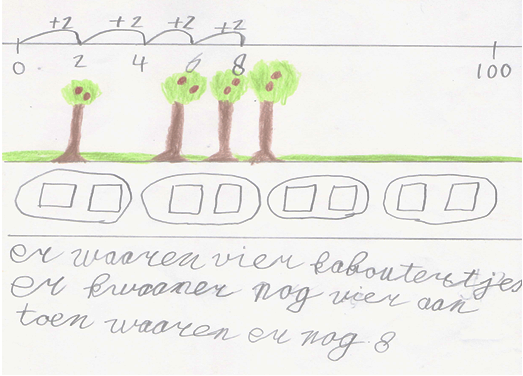 +2 +2 +2 +2
0 2 4 6 8 100
er waaren vier kaboutertjes
er kwaamen nog vier aan
toen waaren er nog 8